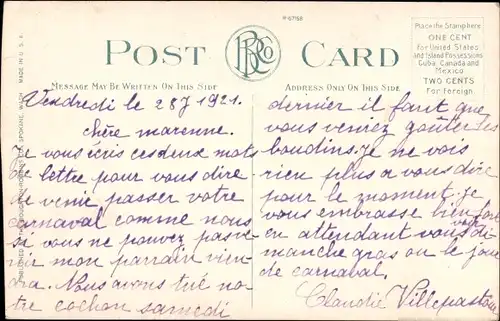 R-67158
POST CARD
BRCo
MESSAGE MAY BE WRITTEN ON THIS SIDE
ADDRESS ONLY ON THIS SIDE
Place the Stamp here
ONE CENT
for United States
and Island Possessions
Cuba, Canada and
Mexico
TWO CENTS
For Foreign.
MADE IN U.S.A.
SPOKANE, WASH.
Vendredi le 28 7 1921.
chère marenne.
Je vous écris ces deux mots
de lettre pour vous dire
de venir passer votre
carnaval comme nous
si vous ne pouvez pas ve
nir mon parrain vien
dra. Nous avons tué no
tre cochon samedi
dernier il faut que
vous veniez goûter les
boudins. Je ne vois
rien plus a vous dire
pour le moment. je
vous embrasse bien fort
en attendant vous di
manche gras ou le jour
de carnaval.
Claudie